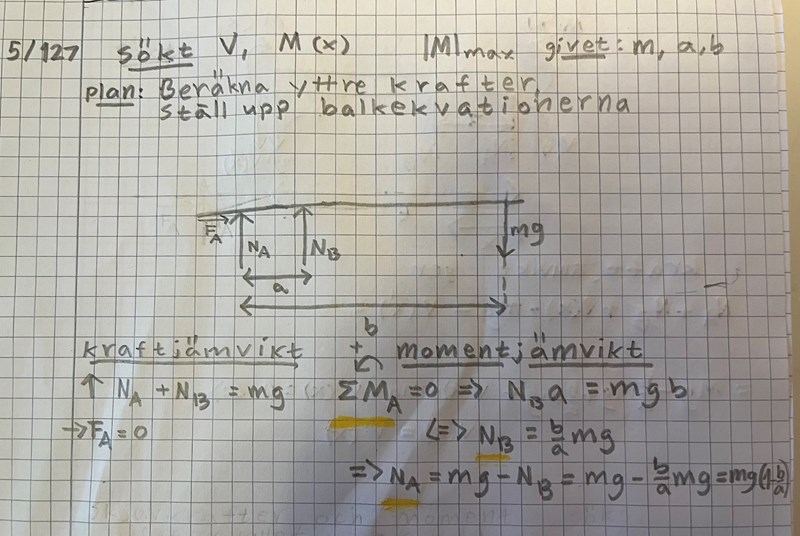 5/127 sökt V, M(x) |M|max givet: m, a, b
plan: Beräkna yttre krafter,
ställ upp balkekvationerna
F_A N_A N_B mg
a
b
kraftjämvikt + momentjämvikt
↑ N_A + N_B = mg ΣM_A = 0 => N_B a = mgb
→ F_A = 0 <=> N_B = b/a mg
=> N_A = mg - N_B = mg - b/a mg = mg(1-b/a)